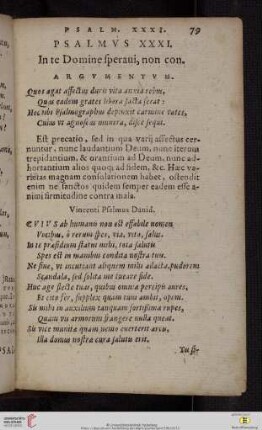 PSALM. XXXI. 79
PSALMVS XXXI.
In te Domine speraui, non con.
ARGVMENTVM.
Quos agat affectus dura vita anxia rebus,
Quas eadem grates libera facta ferat:
Hoc tibi Psalmographus depinxit carmine vates,
Cuius vt agnoscas munera, disce sequi.
Est precatio, sed in qua varij affectus cer-
nuntur, nunc laudantium Deum, nunc iterum
trepidantium, & orantium ad Deum, nunc ad-
hortantium alios quoq; ad fidem, &c. Hæc va-
rietas magnam consolationem habet, ostendit
enim ne sanctos quidem semper eadem esse a-
nimi firmitudine contra mala.
Vincenti Psalmus Dauid.
CVIVS ab humano non est effabile nomen
Vocibus, ô rerum spes, via, vita, salus.
In te præsidium statui mihi, tota salutis
Spes est in manibus condita nostra tuis.
Ne sine, vt incutiant aliquem mihi adacta pudorem
Scandala, sed solita me tueare fide.
Huc age flecte tuas, quibus omnia percipis aures,
Et cito fer, supplex quam tuus ambit, opem.
Sis mihi in auxilium tanquam fortissima rupes,
Quam vis armorum frangere nulla queat.
Sis vice munitæ quam nemo euerterit arcis,
Illa domus nostra cura salutis erit.